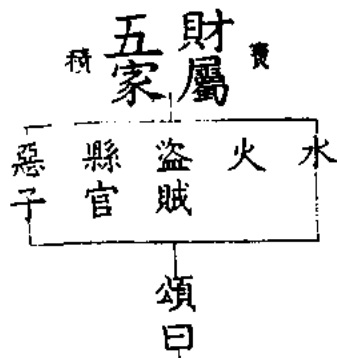 財屬
五家
水
火
盜賊
縣官
惡子
頌曰